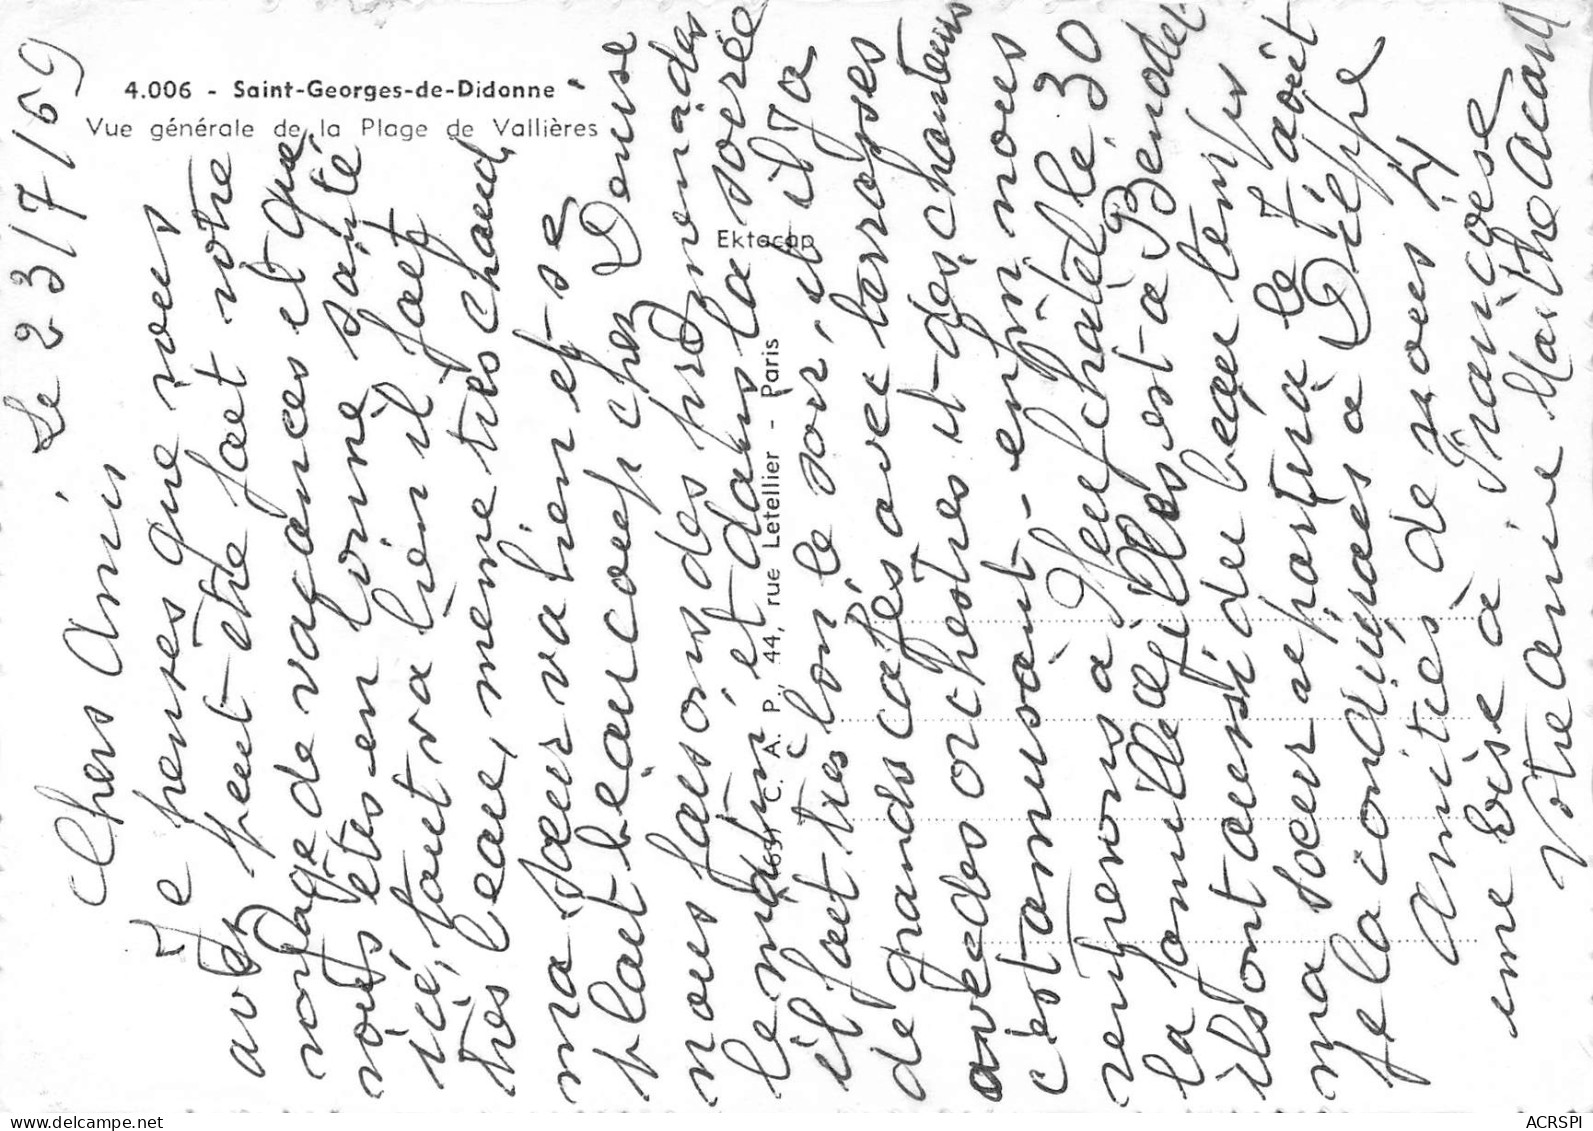 4.006 - Saint-Georges-de-Didonne
Vue générale de la Plage de Vallières
Ektacap
C. A. P., 44, rue Letellier - Paris
Le 23/7/69
Chers Amis
Je penses que vous
avez peut-être fait votre
voyage de vacances et que
vous êtes en bonne santé
ici, tout va bien il fait
très beau, meme très chaud,
ma sœur va bien et se
plait beaucoup chez Denise
nous faisons des promenades
le matin et dans la soirée
il fait très bon le soir, et il y a
de grands cafés avec terrasses
avec des orchestres et des chanteurs
c'est amusant - enfin nous
rentrerons à Neufchâtel le 30
la famille Gilles est à Bénodet
ils ont aussi du beau temps
ma soeur repartira le 7 août
je la conduirais à Dieppe
Amitiés de nous 4
une bise à Françoise
Votre amie Marthe Acard
ACRSPI
www.delcampe.net